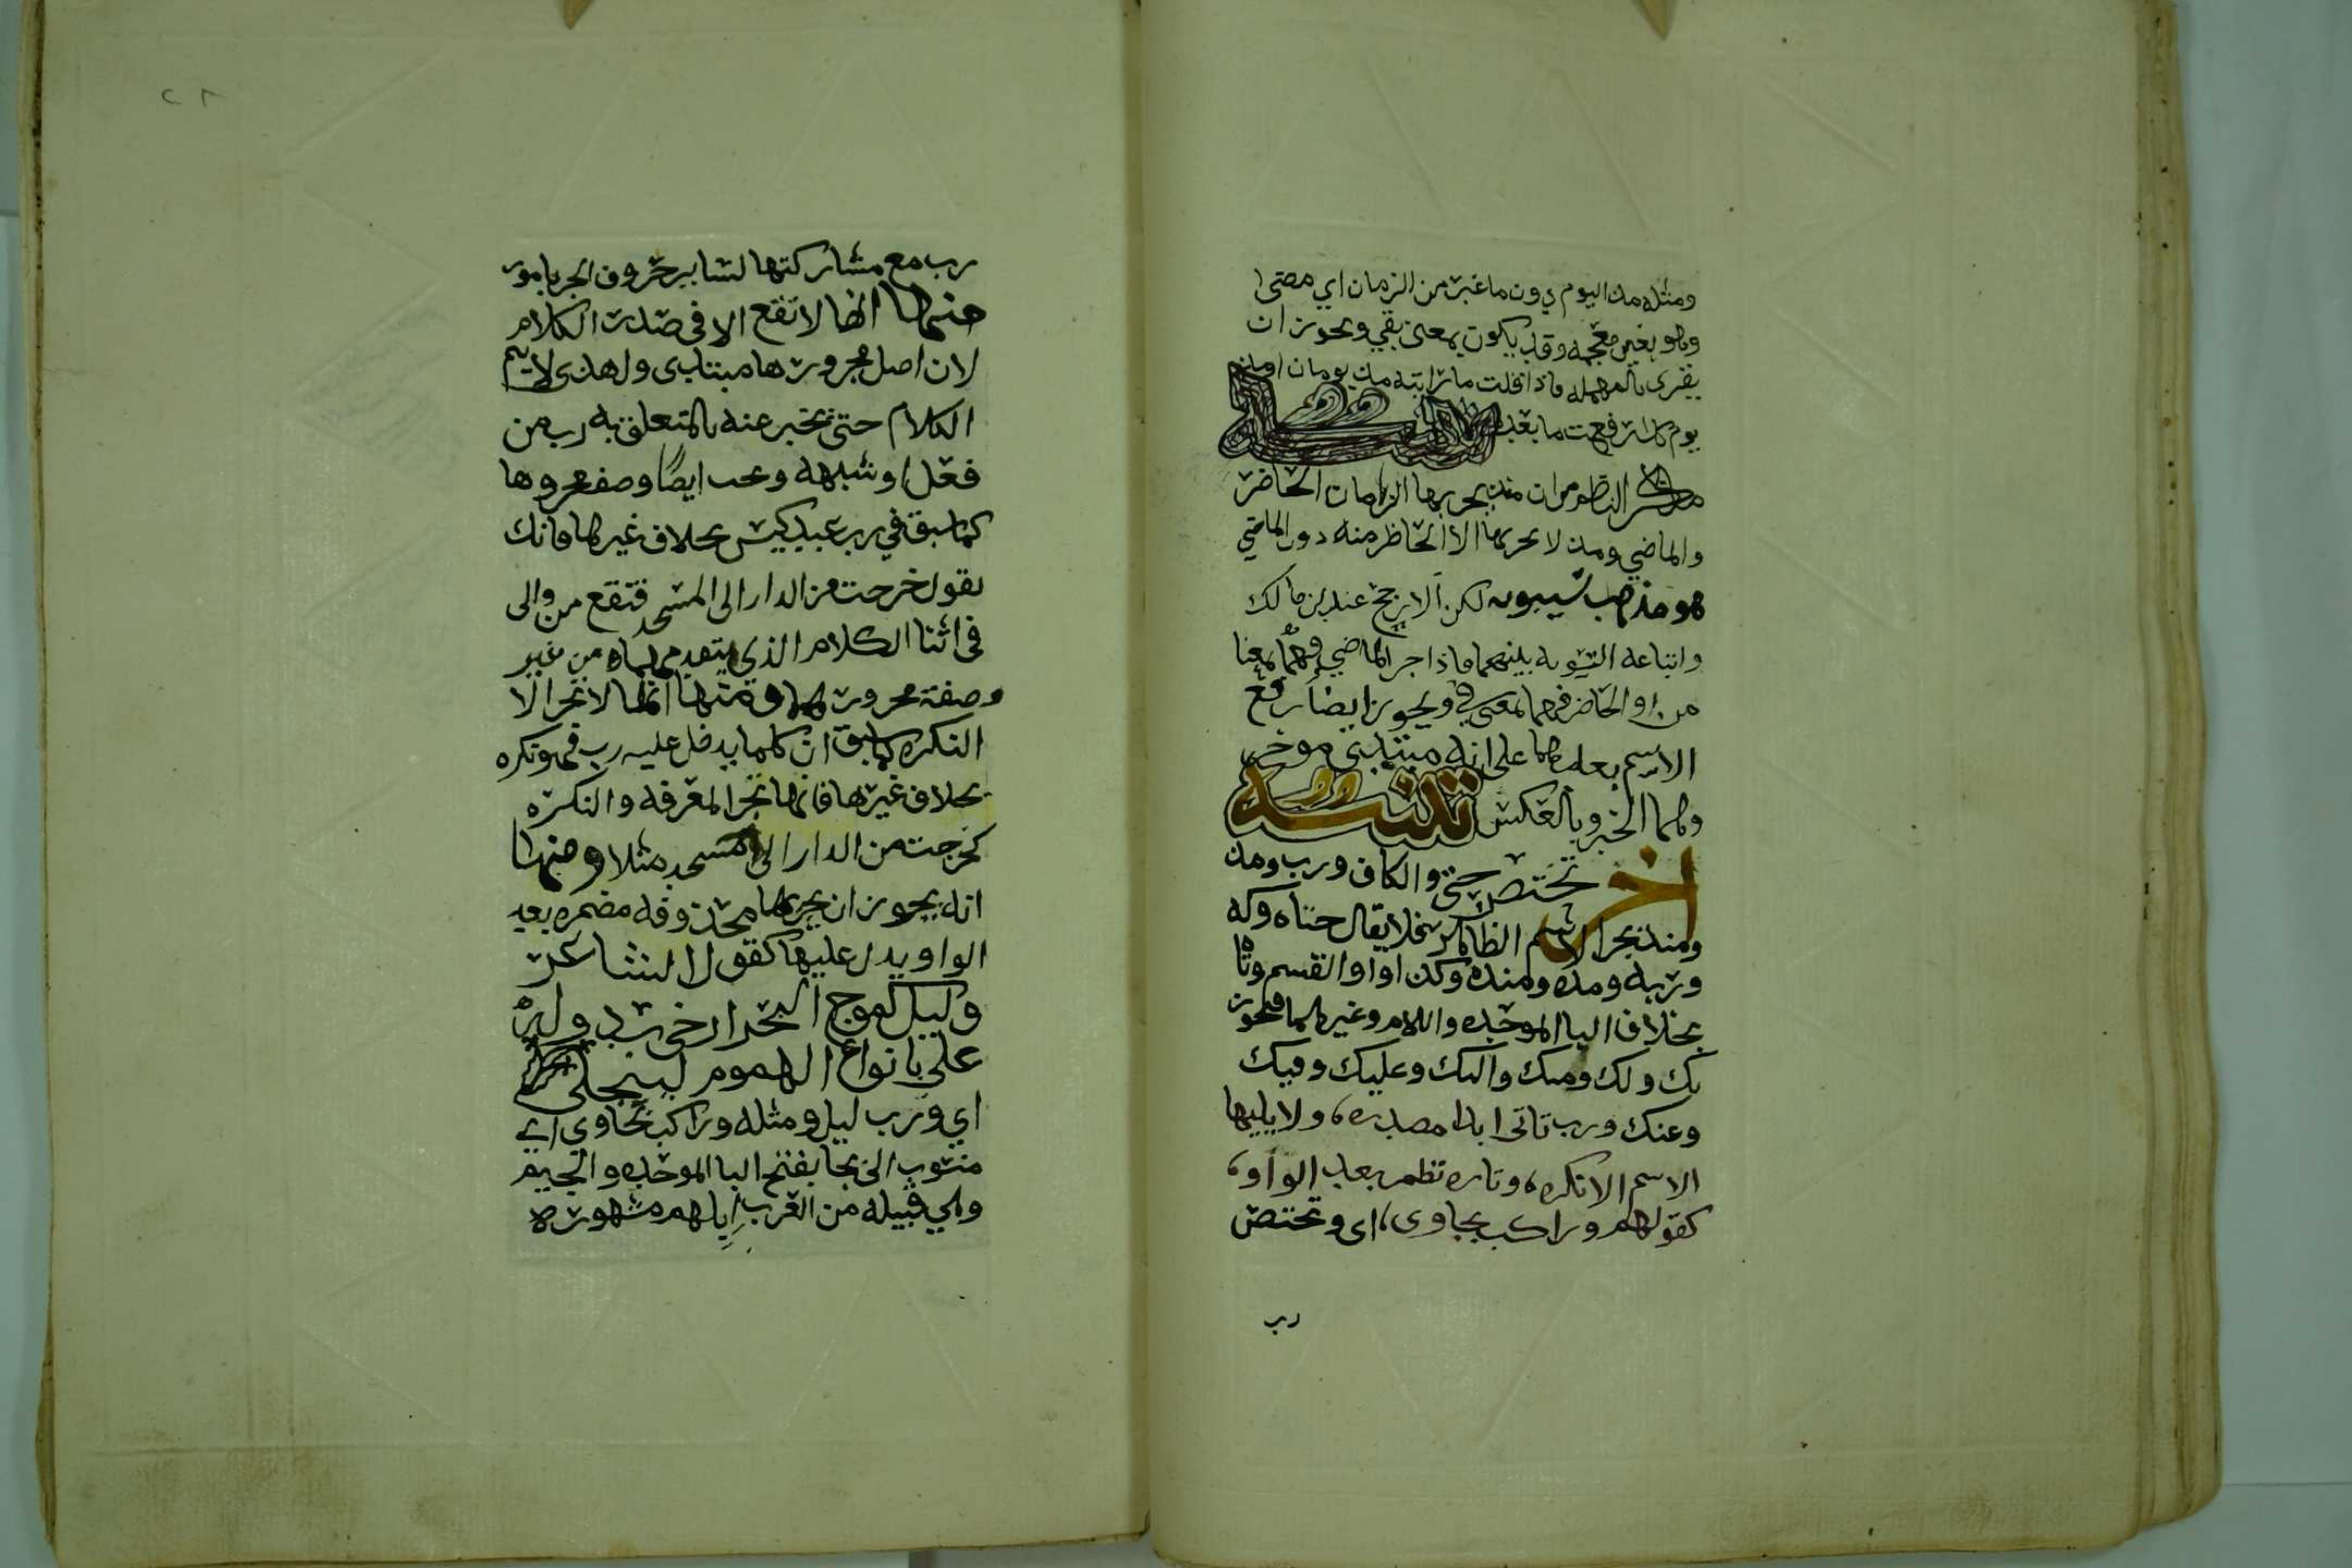 ومثله مذ اليوم دون ما غبر من الزمان اي مضى
وهو بغين معجمه وقد يكون بمعنى بقي ويجوز ان
يقرى بالمهمله فاذا قلت ما رايته مذ يومان او منذ
يوم كذا رفعت ما بعد تنبيه
ذكر الناظم ان منذ يجر بها الزمان الحاضر
والماضي ومذ لا يجر بها الا الحاظر منه دون الماضي
هو مذهب سيبويه لكن الارجح عند بن مالك
واتباعه التسويه بينهما فاذا جر الماضي فهما بمعنا
من او الحاضر فهما بمعنى في ويجوز ايضا رفع
الاسم بعدهما على انه مبتدى موخر
وهما الخبر وبالعكس تنبيه
اخر تختص حتى والكاف ورب ومذ
ومنذ بجر الاسم الظاهر فلا يقال حتاه وكه
وربه ومذه ومنذه وكذا واو القسم وتا
بخلاف البا الموحده واللام وغيرهما فيجوز
بك ولك ومنك واليك وعليك وفيك
وعنك ورب تاتى ابدا مصدره، ولا يليها
الاسم الا نكره، وتاره تظمر بعد الواو،
كقولهم وراكب بجاوى، اى وتختص
رب
٢٦
رب مع مشاركتها لساير حروف الجر بامور
منها انها لا تقع الا في صدر الكلام
لان اصل مجرورها مبتدى ولهذى لا يتم
الكلام حتى تخبر عنه بالمتعلق به رب من
فعل او شبهه ويجب ايضًا وصف مجروها
كما سبق في رب عبد كيس بخلاف غيرها فانك
تقول خرجت من الدار الى المسجد فتقع من والى
في اثنا الكلام الذي يتعدى بهما من غير
وصفة مجرور لهما ومنها انها لا تجر الا
النكره كما سبق ان كلما يدخل عليه رب فهو نكره
بخلاف غيرها فانها تجر المعرفه والنكره
كخرجت من الدار الى المسجد مثلا ومنها
انه يجوز ان يجر بها محذوفه مضمره بعد
الواو ويدل عليها كقول الشاعر
وليل كموج البحر ارخى سدوله
علي بانواع الهموم ليبتلي
اي ورب ليل ومثله وراكب بجاوي اي
منسوب الى بجا بفتح البا الموحده والجيم
وهي قبيله من العرب ابلهم مشهوره